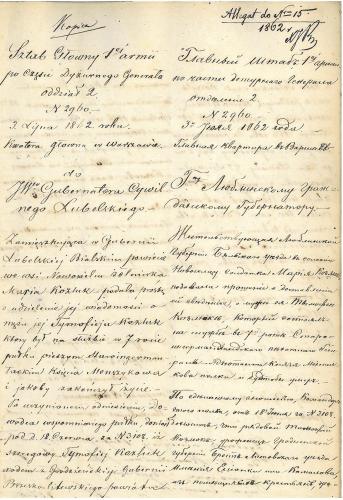 Kopia
Allegat do No 15
1862 r
Sztab Główny 1ej Armii
po Części Dyżurnego Generała
oddział 2
N 2960
3 Lipca 1862 roku
Kwatera główna w Warszawie
do
JWo Gubernatora Cywil
nego Lubelskiego.
Zamieszkująca w Gubernii
Lubelskiej Bialskim powiecie
we wsi żołnierka
Marja Kozluk podała prośbę
o udzielenie jej wiadomości o
mężu jej Tymofieju Kozluk
który był na służbie w 7 rocie
pułku pieszym Staroingerman-
landzkim Księcia Menzykowa
i jakoby zakończył życie.
Po uczynionem odniesieniu, Do-
wódca wspomnionego pułku doniósł
pod d. 18 Czerwca za N 3108 iż
szeregowy Tymofiej Kozluk
rodem z Grodzieńskiej Gubernii
powiatu
Главный Штабъ 1й Арміи
по части дежурнаго Генерала
отдѣленіе 2
N 2960.
3го Іюля 1862 года
Главная квартира въ Варшавѣ
Гну Люблинскому Граж-
данскому Губернатору.
Жительствующая Люблинской
Губерніи Бѣльскаго уѣзда въ селеніи
солдатка Марія Козлюкъ
подавала прошеніе о доставленіи
ей свѣдѣнія о мужѣ ея Тимофеѣ
Козлюкѣ, который состоялъ
на службѣ въ 7й ротѣ Старо-
ингерманландскаго пѣхотнаго Гене-
рала Князя Меншикова
полка и будто бы умеръ.
По сдѣланному сношенію, Командиръ
полка, отъ 18 Іюня за N 3108
что рядовой Тимофей
Козлюкъ, уроженецъ Гродненской
губерніи уѣзда